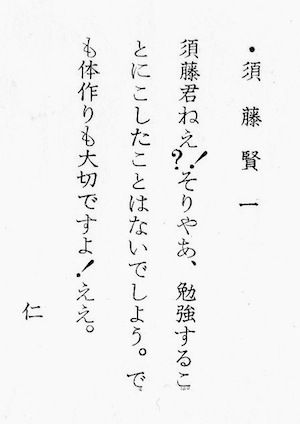 ・須藤賢一
須藤君ねえ?!そりやあ、勉強するこ
とにこしたことはないでしよう。で
も体作りも大切ですよ!ええ。
仁